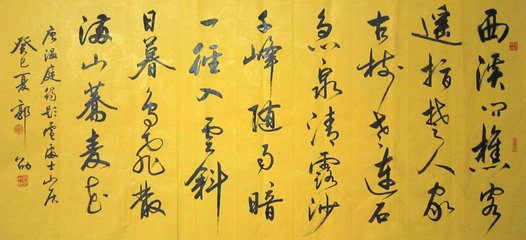 西溪问樵客
遥指楚人家
古树老连石
急泉清露沙
千峰随雨暗
一径入雲斜
日暮鸟飞散
满山蕎麦花
唐温庭筠题盧處士山居
癸巳夏郭